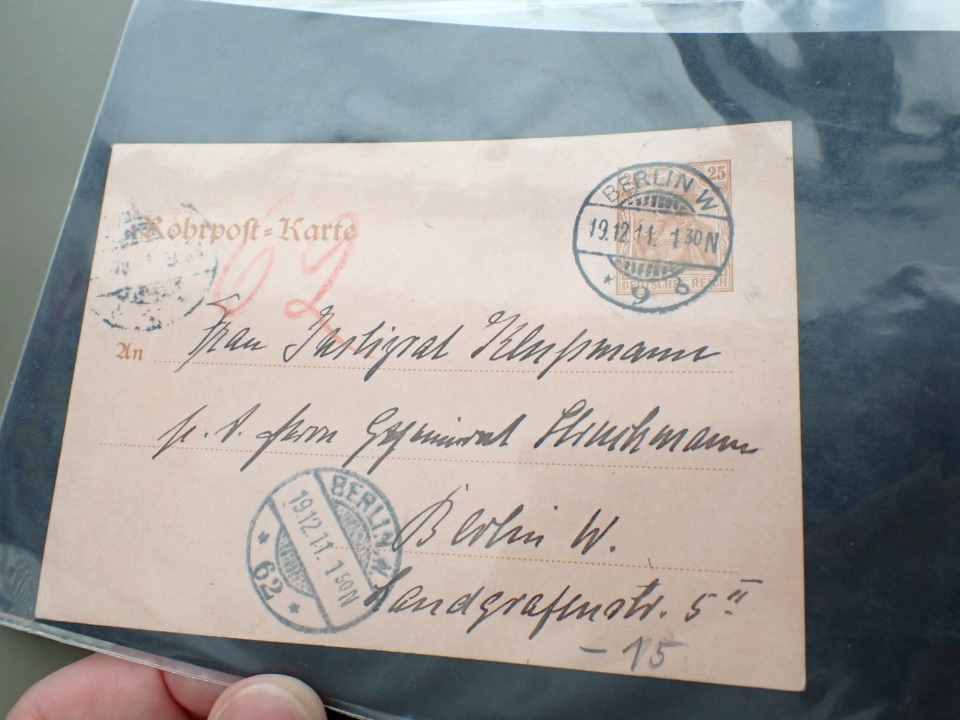 25
BERLIN W
19.12.11. 1 30 N
* 9 b
DEUTSCHES REICH
Rohrpost=Karte
62
An Frau Justizrat Klussmann
Herrn Geheimrat
Berlin W.
Landgrafenstr. 5 II
BERLIN.W.
19.12.11. 1 50 N
* 62 *
- 15